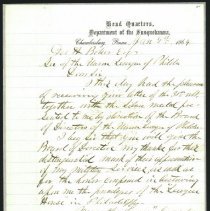 Head Quarters,
Department of the Susquehanna,
Chambersburg, Penna. Jan 1864
Geo H. Boker Esqr
Sec of the Union League of Phila
Dear Sir
I this day had the pleasure
of receiving your letter of the
together with the Silver medal pre-
sented to me by direction of the Board
of Directors of the Union League of Phila.
the
Board of Directors my thanks for this
distinguished mark of their appreciation
of my military services, as well as
for the honor conferred in bestowing
upon me the freedom of the League
House in Philadelphia